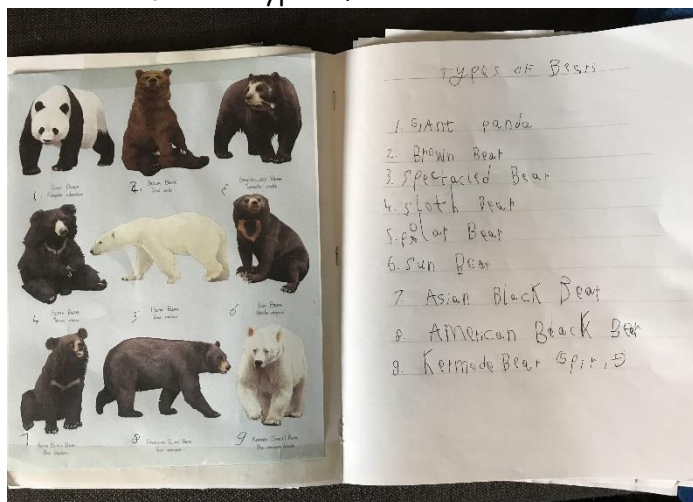 1. Giant Panda
2. Brown Bear
Spectacled Bear
4 Sloth Bear
5 Polar Bear
6 Sun Bear
7 Asian Black Bear
8 American Black Bear
9 Kermode (Spirit) Bear
TYPES OF Bears
1. GiAnt panda
2. Brown Bear
3. Spectacled Bear
4. sloth Bear
5. polar Bear
6. Sun Bear
7. Asian Black Bear
8. American Black Bear
9. Kermode Bear Spirit